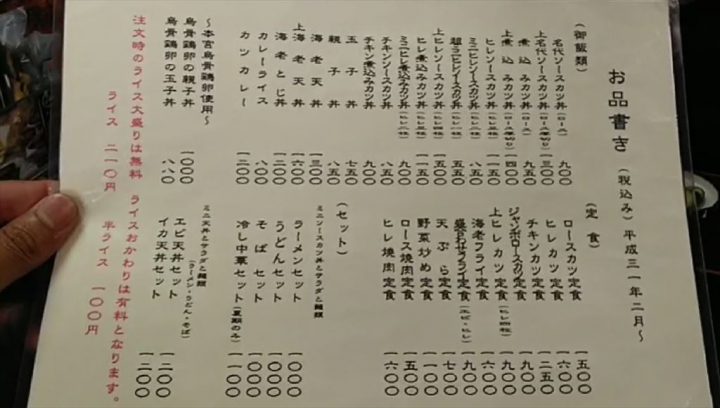 お品書き （税込み）平成三一年二月～
（御飯類）
名代ソースカツ丼（ロース） 九〇〇
上名代ソースカツ丼（ロース厚切り） 一三〇〇
煮込みカツ丼（ロース） 九五〇
上煮込みカツ丼（ロース厚切り） 一四〇〇
ヒレソースカツ丼（ヒレ三枚） 一一五〇
ミニヒレソースカツ丼（ヒレ二枚） 八五〇
超ミニヒレソースカツ丼（ヒレ一枚） 五五〇
上ヒレソースカツ丼（ヒレ四枚） 一五五〇
ヒレ煮込みカツ丼（ヒレ三枚） 一一五〇
ミニヒレ煮込みカツ丼（ヒレ二枚） 九〇〇
チキンソースカツ丼 八五〇
チキン煮込みカツ丼 九〇〇
玉子丼 七五〇
親子丼 八五〇
海老天丼 一三〇〇
上海老天丼 一六〇〇
海老とじ丼 一二〇〇
カレーライス 八〇〇
カツカレー 一二〇〇
～本宮烏骨鶏卵使用～
烏骨鶏卵の親子丼 一〇〇〇
烏骨鶏卵の玉子丼 八八〇
（定食）
ロースカツ定食 一五〇〇
ヒレカツ定食 一六〇〇
チキンカツ定食 一二五〇
ジャンボロースカツ定食 一九〇〇
上ヒレカツ定食（ヒレ四枚） 一九〇〇
海老フライ定食 一六〇〇
盛合わせフライ定食（エビ・ヒレ） 一九〇〇
天ぷら定食 一七〇〇
野菜炒め定食 一一〇〇
ロース焼肉定食 一五〇〇
ヒレ焼肉定食 一六〇〇
（セット）
ミニソースカツ丼とサラダと麺類
ラーメンセット 一〇〇〇
うどんセット 一〇〇〇
そばセット 一〇〇〇
冷し中華セット（夏期のみ） 一一〇〇
ミニ天丼とサラダと麺類
（ラーメン・うどん・そば）
エビ天丼セット 一二〇〇
イカ天丼セット 一二〇〇
注文時のライス大盛りは無料 ライスおかわりは有料となります。
ライス 二一〇円 半ライス 一〇〇円